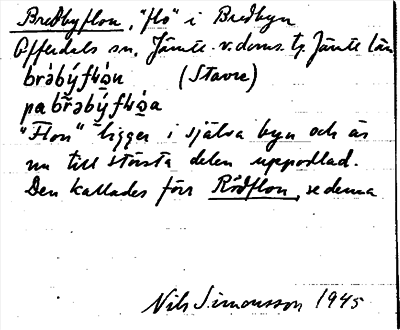 Bredbyflon, "flo" i Bredbyn
Offerdals sn. Jämte. v. doms. tg. Jämte län
brə̀býflǫ̀n (Stavre)
pa br̆əbýflǫ̀a
"Flon" ligger i själva byn och är
nu till största delen uppodlad.
Den kallades förr Rödflon, se denna
Nils Simonsson 1945